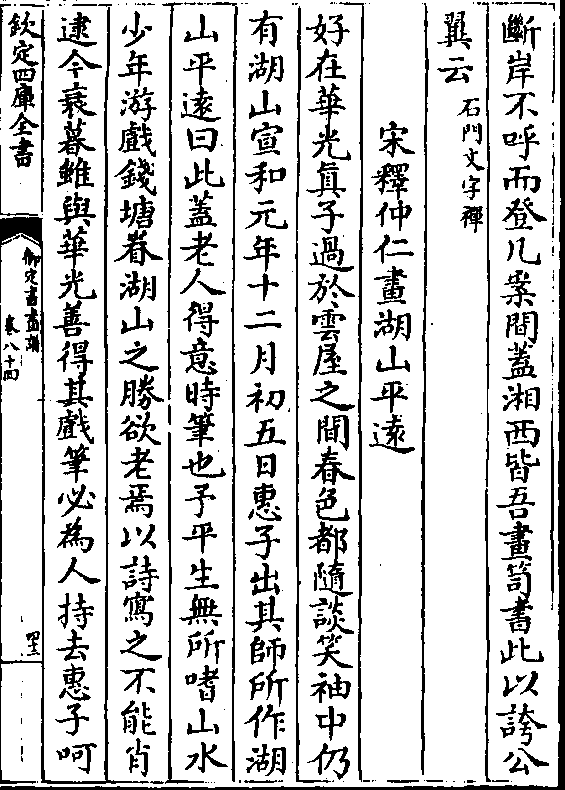 斷岸不呼而登几案間蓋湘西皆吾畫笥書此以誇公
翼云
石門文字禪
宋釋仲仁畫湖山平遠
好在華光真子過於雲屋之間春色都隨談笑袖中仍
有湖山宣和元年十二月初五日惠子出其師所作湖
山平遠曰此蓋老人得意時筆也予平生無所嗜山水
少年游戲錢塘眷湖山之勝欲老焉以詩寫之不能肖
逮今衰暮雖與華光善得其戲筆必為人持去惠子呵
欽定四庫全書
御定書畫譜
卷八十四